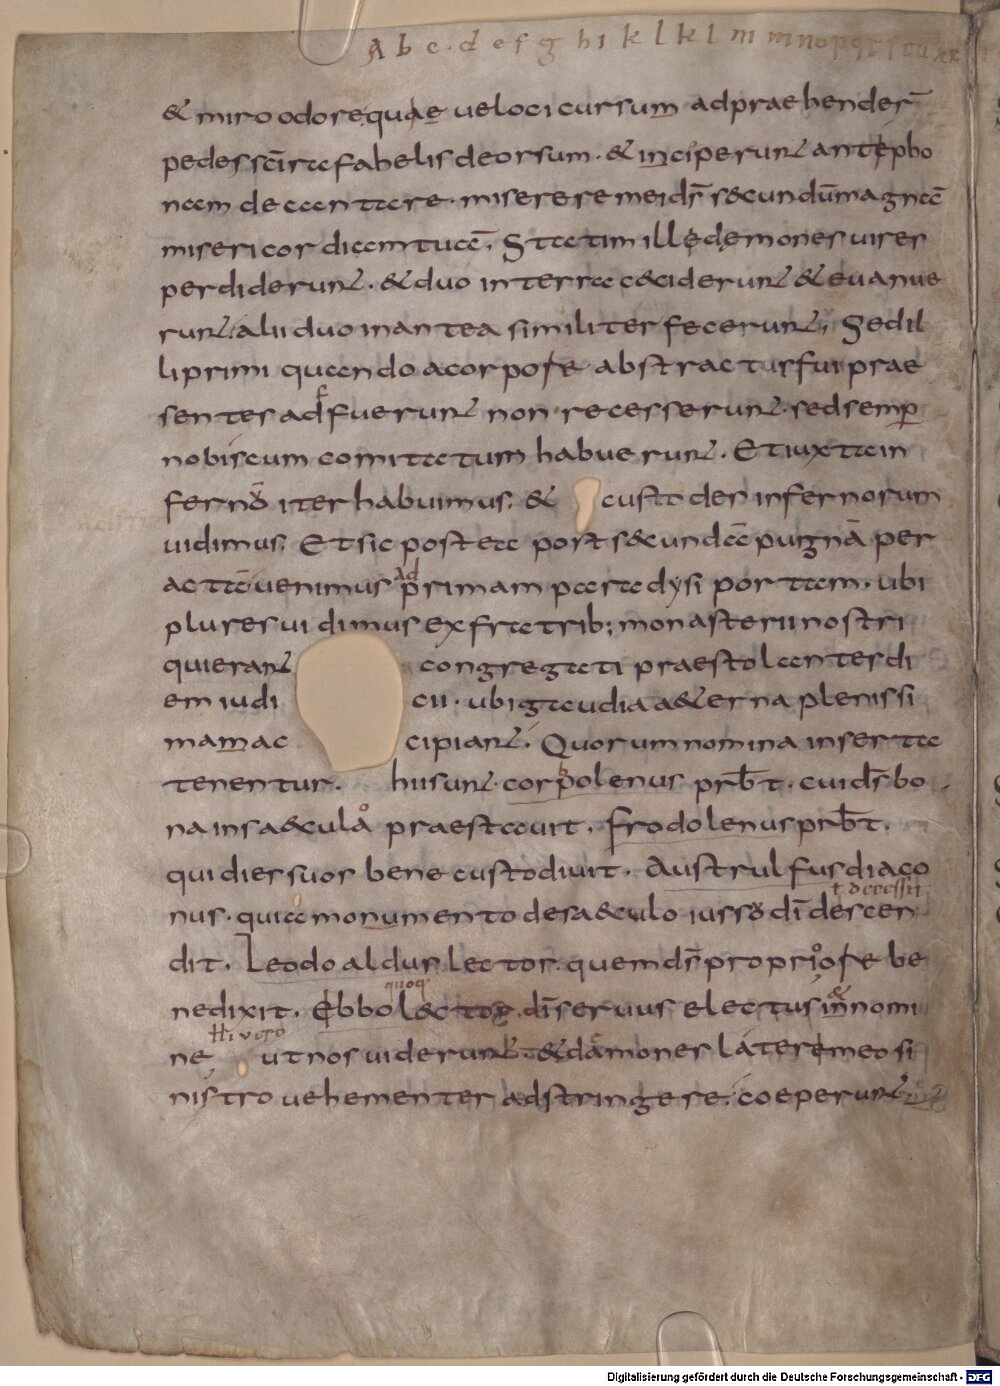 A b c d e f g h i k l k l m m n o p q r s t u x
& miro odore quae ueloci cursum adpraehender̄
pedes sc̄i rafahelis deorsum · & inciperunt antepho
nam decantare · miserere mei ds̄ s&cundū magnā
misericordiam tuā. Statim ille demones uires
perdiderunt · & duo in terra c&ciderunt & euanue
runt. alii duo in antea similiter fecerunt; Sed il
li primi quando a corpore abstractus fui prae
sentes adfuerunt non recesserunt · sed semp̄
nobiscum comitatum habuerunt. Et iuxta in
fernō iter habuimus. & custodes infernorum
uidimus. Et sic post ea post s&cundā pugnā per
actā uenimus ad primam paradysi portam · ubi
plures uidimus ex fratrib; monasterii nostri
qui erant congregati praestolantes di
em iudicii · ubi gaudia a&erna plenissi
mam accipiant. Quorum nomina inserta
tenentur. hii sunt · corbolenus prb̄t · cui ds̄ bo
na in sa&cula praestauit. frodolenus prb̄t.
qui dies suos bene custodiuit. Austrulfus diaco
nus · qui a monumento de sa&culo iusso dī descen
dit. Leodoaldus lector · quem ds̄ proprio ore be
nedixit. Ebbo quoq· l&tor dī seruus electus
ne ut nos uiderunt & daemones latere meo si
nistro uehementer adstringere · coeperunt
Digitalisierung gefördert durch die Deutsche Forschungsgemeinschaft - DFG